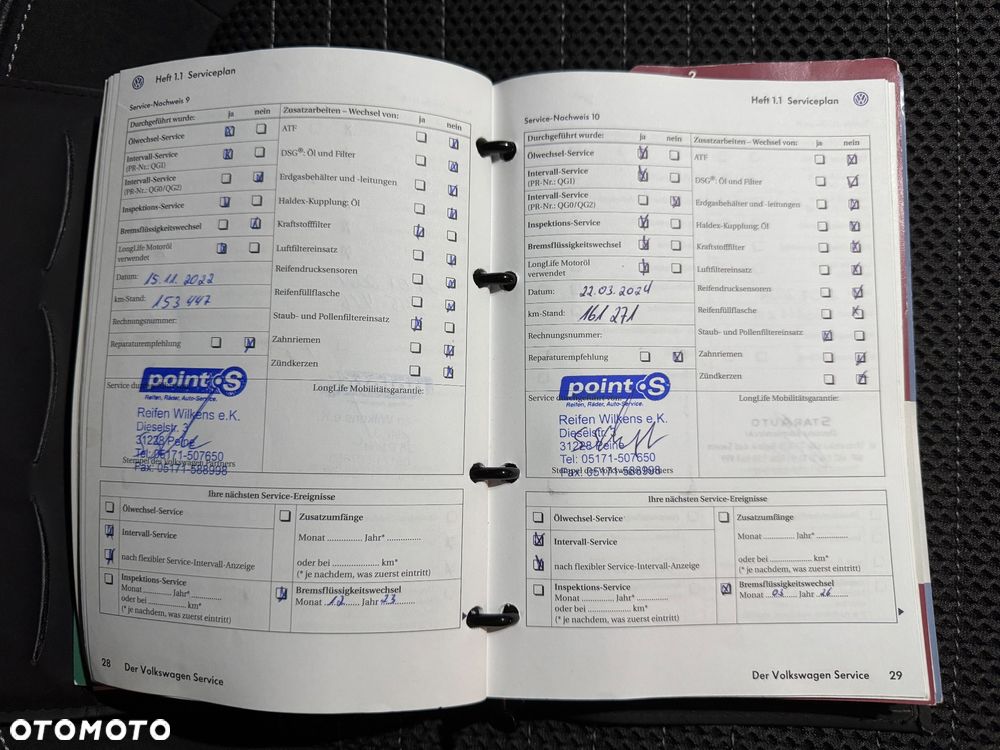 Heft 1.1 Serviceplan
Service-Nachweis 9
Durchgeführt wurde: ja nein
Ölwechsel-Service
Intervall-Service
(PR-Nr.: QG1)
Intervall-Service
(PR-Nr.: QG0/QG2)
Inspektions-Service
Bremsflüssigkeitswechsel
LongLife Motoröl
verwendet
Datum: 15.11.2022
km-Stand: 153 447
Rechnungsnummer:
Reparaturempfehlung
Zusatzarbeiten – Wechsel von: ja nein
ATF
DSG®: Öl und Filter
Erdgasbehälter und -leitungen
Haldex-Kupplung: Öl
Kraftstofffilter
Luftfiltereinsatz
Reifendrucksensoren
Reifenfüllflasche
Staub- und Pollenfiltereinsatz
Zahnriemen
Zündkerzen
Service durchgeführt
point S
Reifen, Räder, Auto-Service.
Reifen Wilkens e.K.
Dieselstr. 3
31228 Peine
Tel.: 05171-507650
Fax: 05171-588998
Stempel des Volkswagen Partners
LongLife Mobilitätsgarantie:
Ihre nächsten Service-Ereignisse
Ölwechsel-Service
Intervall-Service
nach flexibler Service-Intervall-Anzeige
Inspektions-Service
Monat ............ Jahr* ............
oder bei .................... km*
(* je nachdem, was zuerst eintritt)
Zusatzumfänge
Monat ............ Jahr* ............
oder bei .................... km*
(* je nachdem, was zuerst eintritt)
Bremsflüssigkeitswechsel
Monat 12 Jahr 23
28 Der Volkswagen Service
2
Heft 1.1 Serviceplan
Service-Nachweis 10
Durchgeführt wurde: ja nein
Ölwechsel-Service
Intervall-Service
(PR-Nr.: QG1)
Intervall-Service
(PR-Nr.: QG0/QG2)
Inspektions-Service
Bremsflüssigkeitswechsel
LongLife Motoröl
verwendet
Datum: 22.03.2024
km-Stand: 161 271
Rechnungsnummer:
Reparaturempfehlung
Zusatzarbeiten – Wechsel von: ja nein
ATF
DSG®: Öl und Filter
Erdgasbehälter und -leitungen
Haldex-Kupplung: Öl
Kraftstofffilter
Luftfiltereinsatz
Reifendrucksensoren
Reifenfüllflasche
Staub- und Pollenfiltereinsatz
Zahnriemen
Zündkerzen
Service durchgeführt von:
point S
Reifen, Räder, Auto-Service.
Reifen Wilkens e.K.
Dieselstr. 3
31228 Peine
Tel: 05171-507650
Fax: 05171-588998
Stempel des Volkswagen Partners
LongLife Mobilitätsgarantie:
Ihre nächsten Service-Ereignisse
Ölwechsel-Service
Intervall-Service
nach flexibler Service-Intervall-Anzeige
Inspektions-Service
Monat ............ Jahr* ............
oder bei .................... km*
(* je nachdem, was zuerst eintritt)
Zusatzumfänge
Monat ............ Jahr* ............
oder bei .................... km*
(* je nachdem, was zuerst eintritt)
Bremsflüssigkeitswechsel
Monat 03 Jahr 26
Der Volkswagen Service 29
OTOMOTO